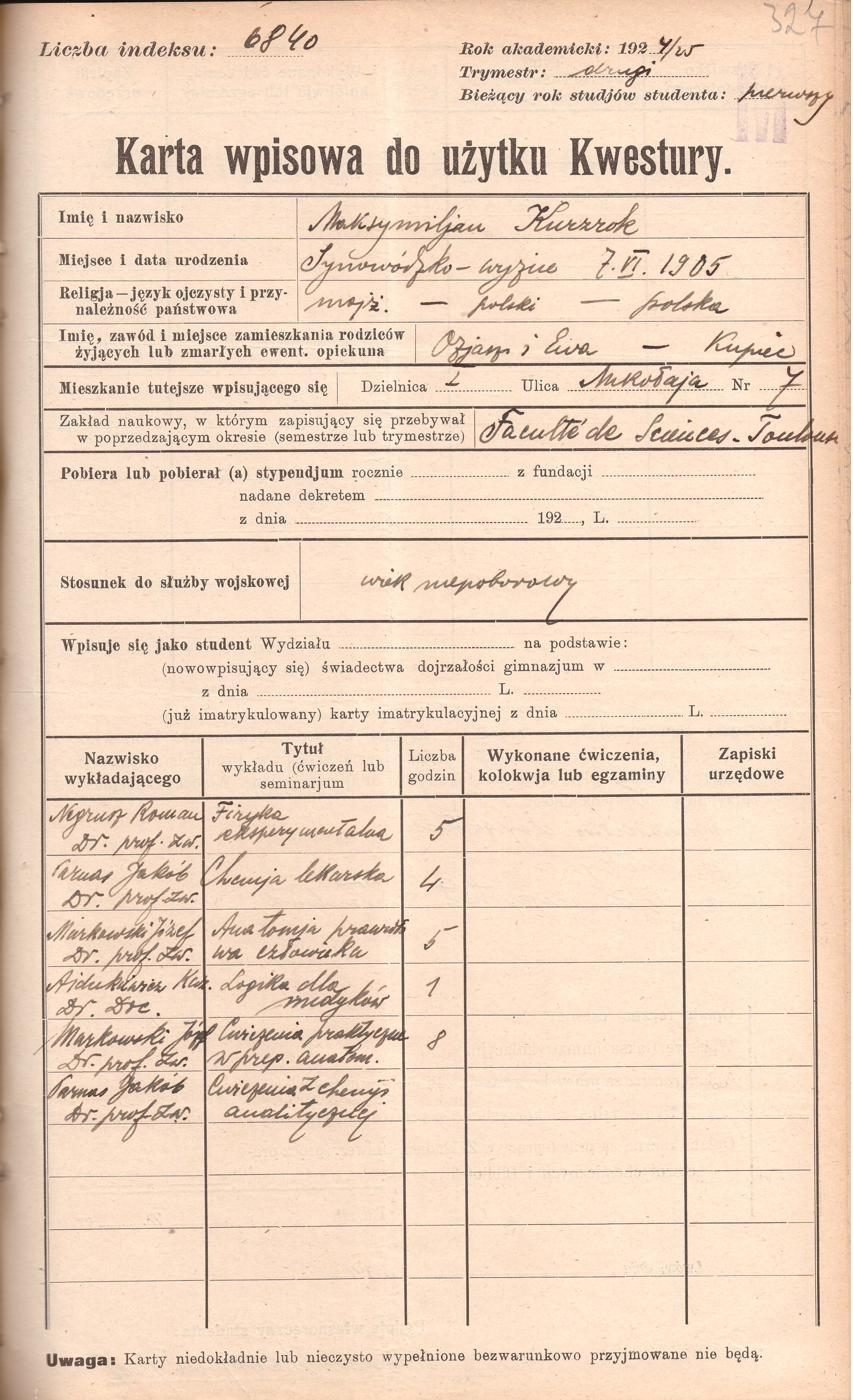 327
Liczba indeksu: 6840
Rok akademicki: 1924/25
Trymestr: drugi
Bieżący rok studjów studenta: pierwszy
Karta wpisowa do użytku Kwestury.
Imię i nazwisko Maksymiljan Kurzrok
Miejsce i data urodzenia Synowódzko - wyżne 7. VI. 1905
Religja — język ojczysty i przy-
należność państwowa mojż. — polski — polska
Imię, zawód i miejsce zamieszkania rodziców
żyjących lub zmarłych ewent. opiekuna Ozjasz i Ewa — Kupiec
Mieszkanie tutejsze wpisującego się Dzielnica I Ulica Mikołaja Nr 7
Zakład naukowy, w którym zapisujący się przebywał
w poprzedzającym okresie (semestrze lub trymestrze) Faculté de Sciences - Toulouse
Pobiera lub pobierał (a) stypendjum rocznie z fundacji
nadane dekretem
z dnia 192 , L.
Stosunek do służby wojskowej wiek niepoborowy
Wpisuje się jako student Wydziału na podstawie:
(nowowpisujący się) świadectwa dojrzałości gimnazjum w
z dnia L.
(już imatrykulowany) karty imatrykulacyjnej z dnia L.
Nazwisko
wykładającego
Tytuł
wykładu (ćwiczeń lub
seminarjum
Liczba
godzin
Wykonane ćwiczenia,
kolokwja lub egzaminy
Zapiski
urzędowe
Negrusz Roman Fizyka
Dr. prof. zw. eksperymentalna 5
Parnas Jakób Chemja lekarska 4
Dr. prof. zw.
Markowski Józef Anatomja prawidło
Dr. prof. zw. wa człowieka 5
Ajdukiewicz Kaz. Logika dla 1
Dr. Doc. medyków
Markowski Józef Ćwiczenia praktyczne 8
Dr. prof. zw. w prep. anatom.
Parnas Jakób Ćwiczenia z chemji
Dr. prof. zw. analitycznej
Uwaga: Karty niedokładnie lub nieczysto wypełnione bezwarunkowo przyjmowane nie będą.